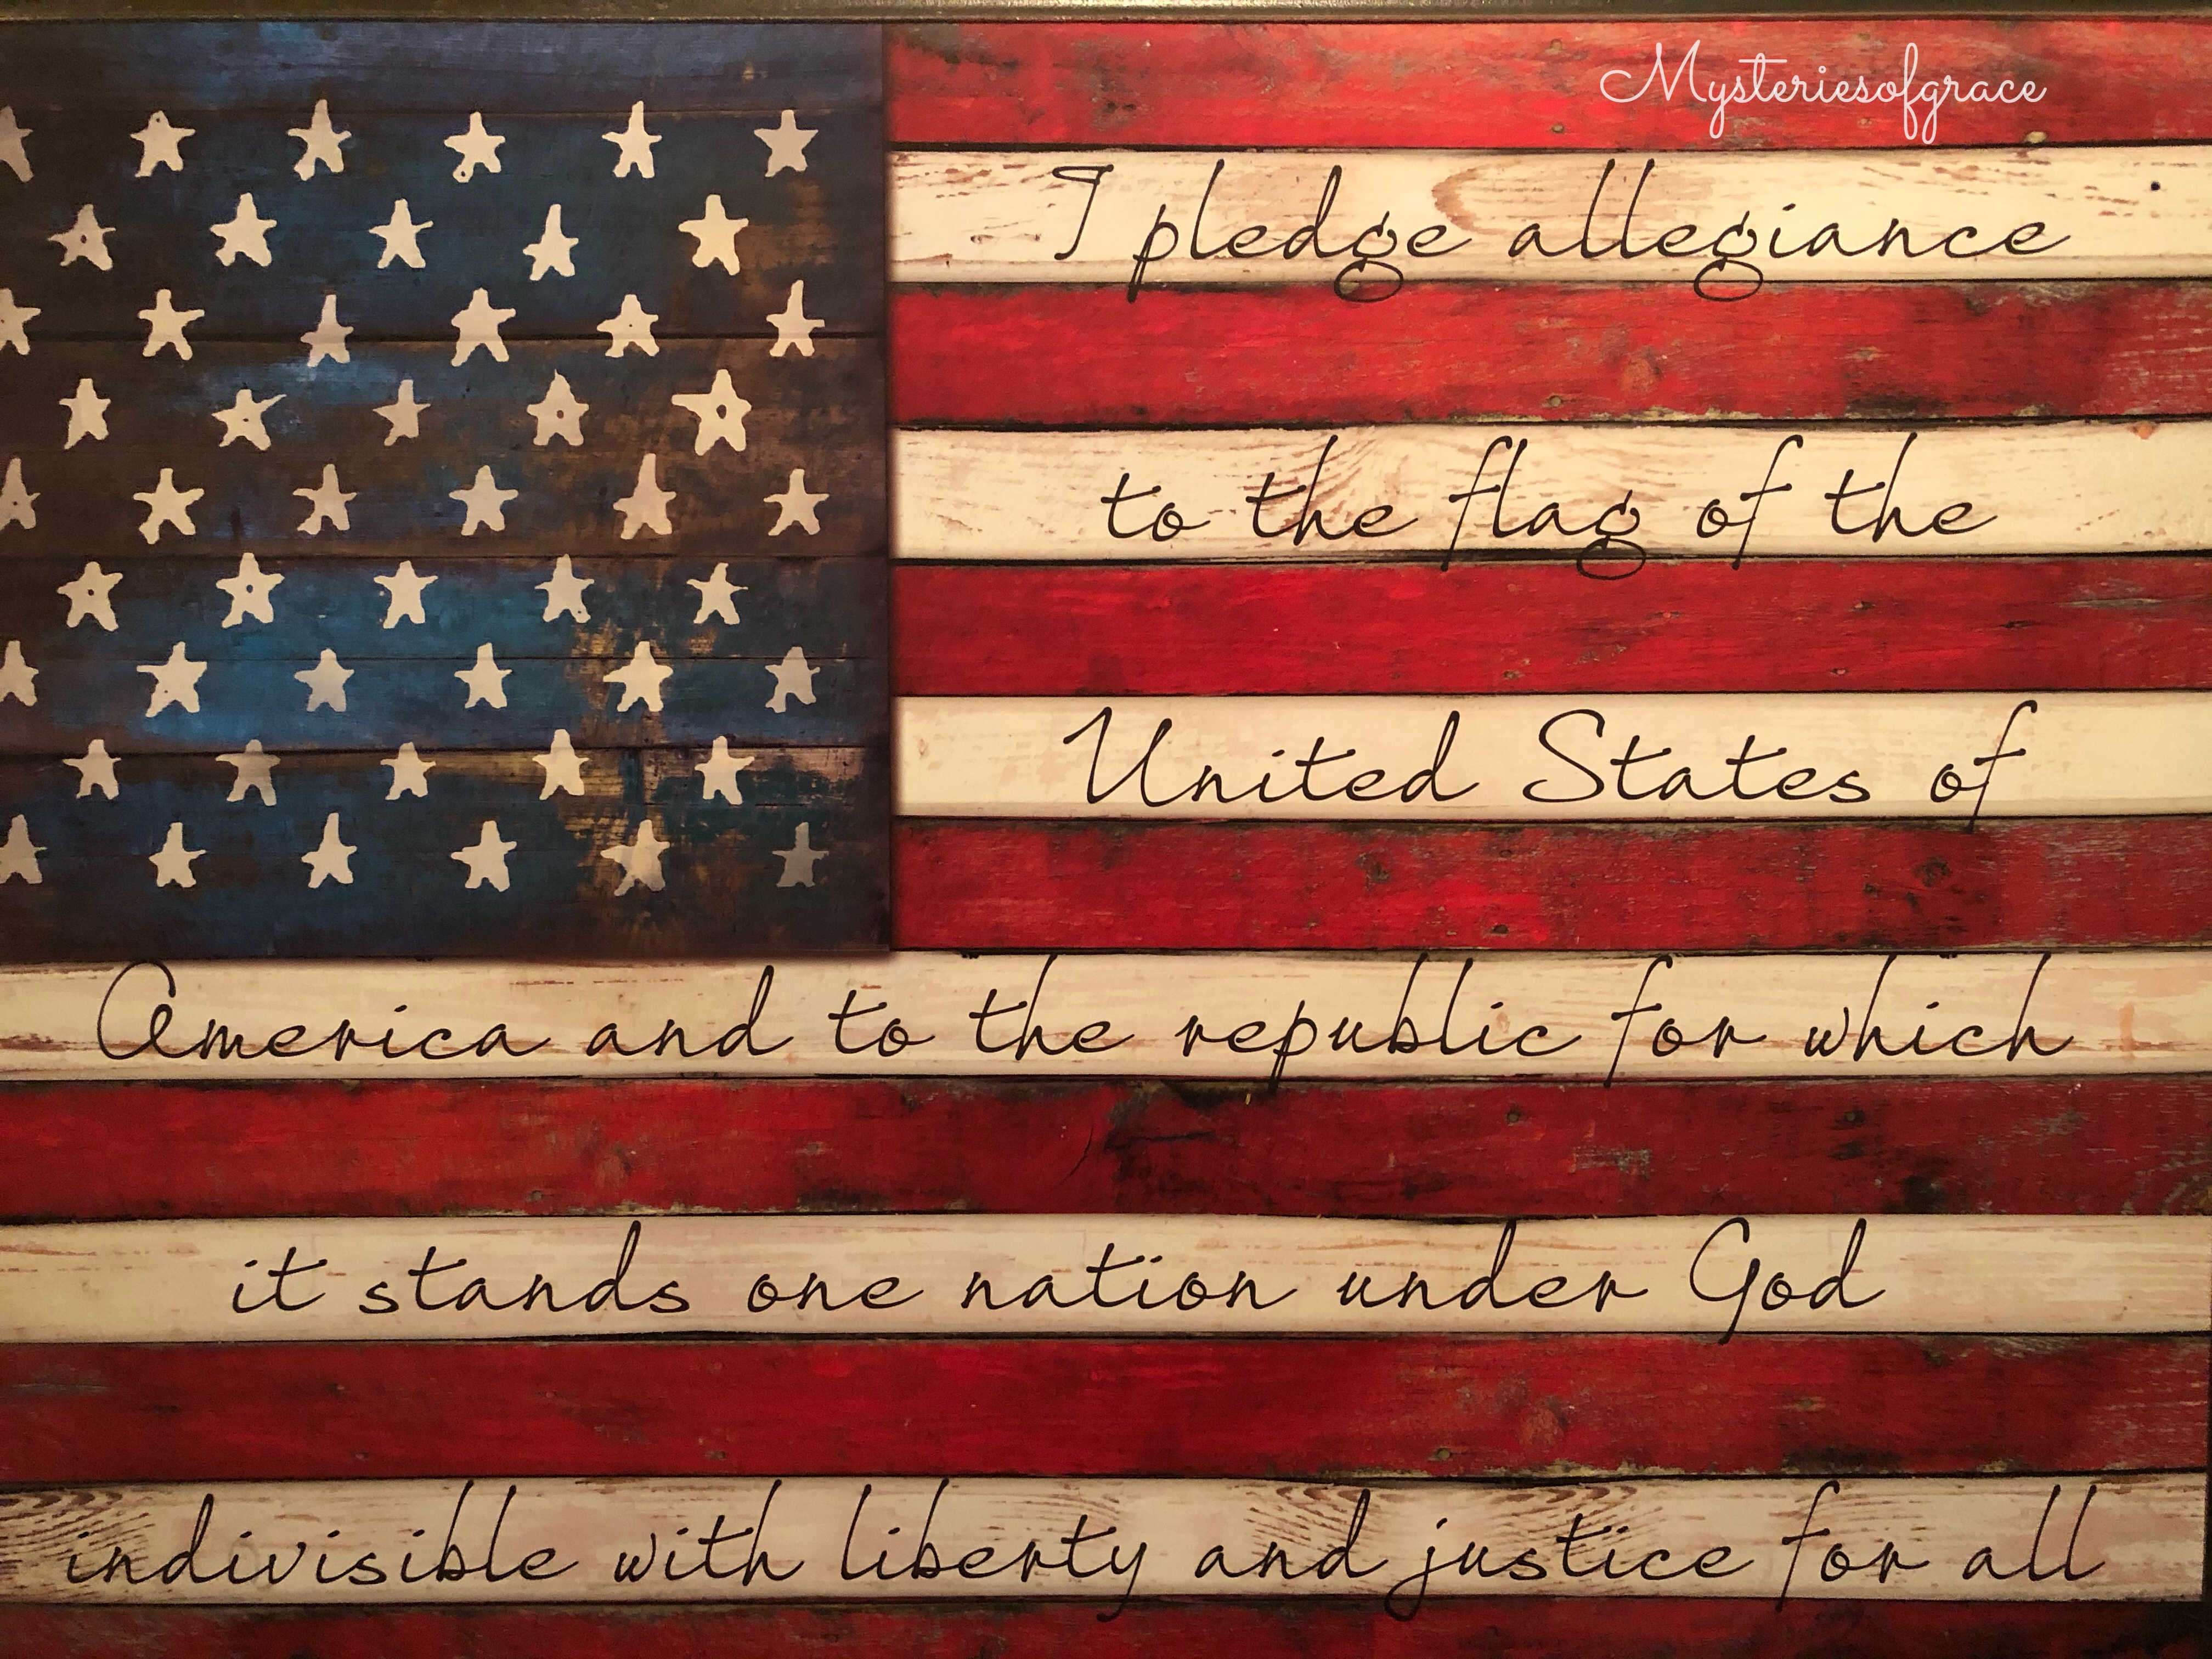 Mysteriesofgrace
I pledge allegiance
to the flag of the
United States of
America and to the republic for which
it stands one nation under God
indivisible with liberty and justice for all